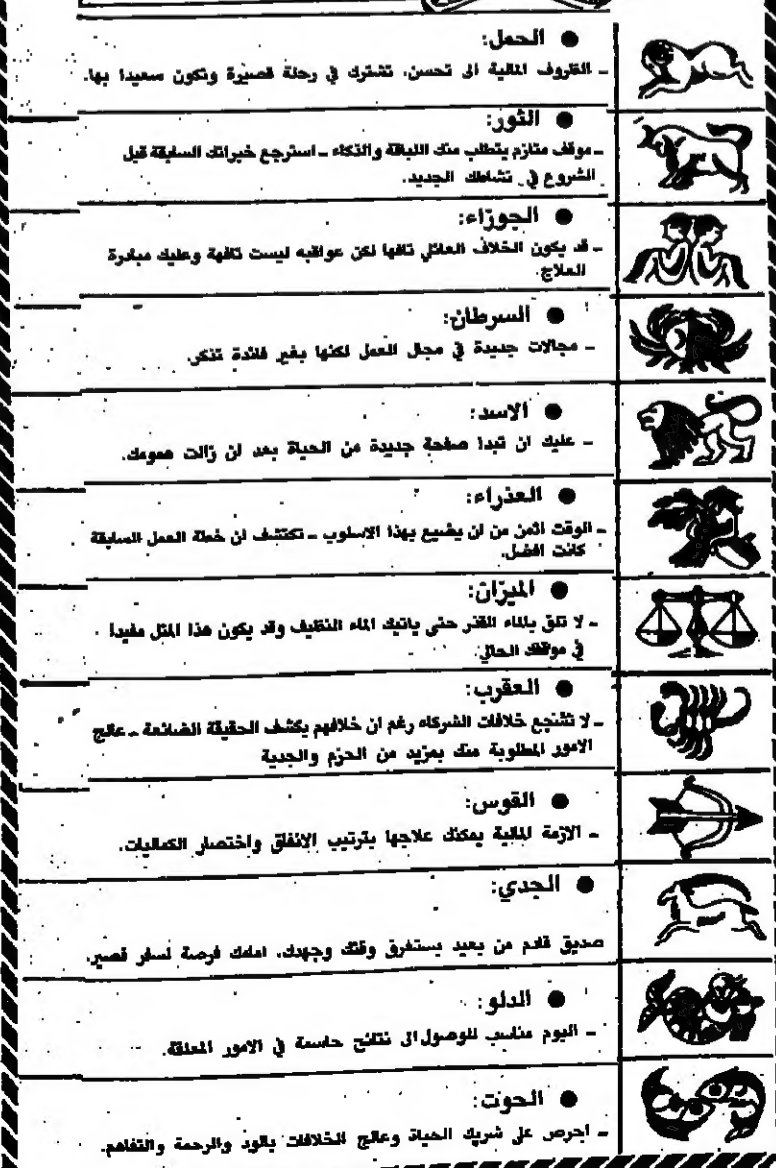 ● الحمل:
ـ الظروف المالية الى تحسن، تشترك في رحلة قصيرة وتكون سعيدا بها.
● الثور:
ـ موقف متازم يتطلب منك اللباقة والذكاء ـ استرجع خبراتك السابقة قبل
الشروع في نشاطك الجديد.
● الجوزاء:
ـ قد يكون الخلاف العائلي تافها لكن عواقبه ليست تافهة وعليك مبادرة
العلاج.
● السرطان:
ـ مجالات جديدة في مجال العمل لكنها بغير فائدة تذكر.
● الاسد:
ـ عليك ان تبدا صفحة جديدة من الحياة بعد ان زالت همومك.
● العذراء:
ـ الوقت اثمن من ان يضيع بهذا الاسلوب ـ تكتشف ان خطة العمل السابقة
كانت افضل.
● الميزان:
ـ لا تلق بالماء القذر حتى ياتيك الماء النظيف وقد يكون هذا المثل مفيدا
في موقفك الحالي.
● العقرب:
ـ لا تشجع خلافات الشركاء رغم ان خلافهم يكشف الحقيقة الضائعة ـ عالج
الامور المطلوبة منك بمزيد من الحزم والجدية
● القوس:
ـ الازمة المالية يمكنك علاجها بترتيب الانفاق واختصار الكماليات.
● الجدي:
صديق قادم من بعيد يستغرق وقتك وجهدك، امامك فرصة لسفر قصير.
● الدلو:
ـ اليوم مناسب للوصول الى نتائج حاسمة في الامور المعلقة.
● الحوت:
ـ احرص على شريك الحياة وعالج الخلافات بالود والرحمة والتفاهم.